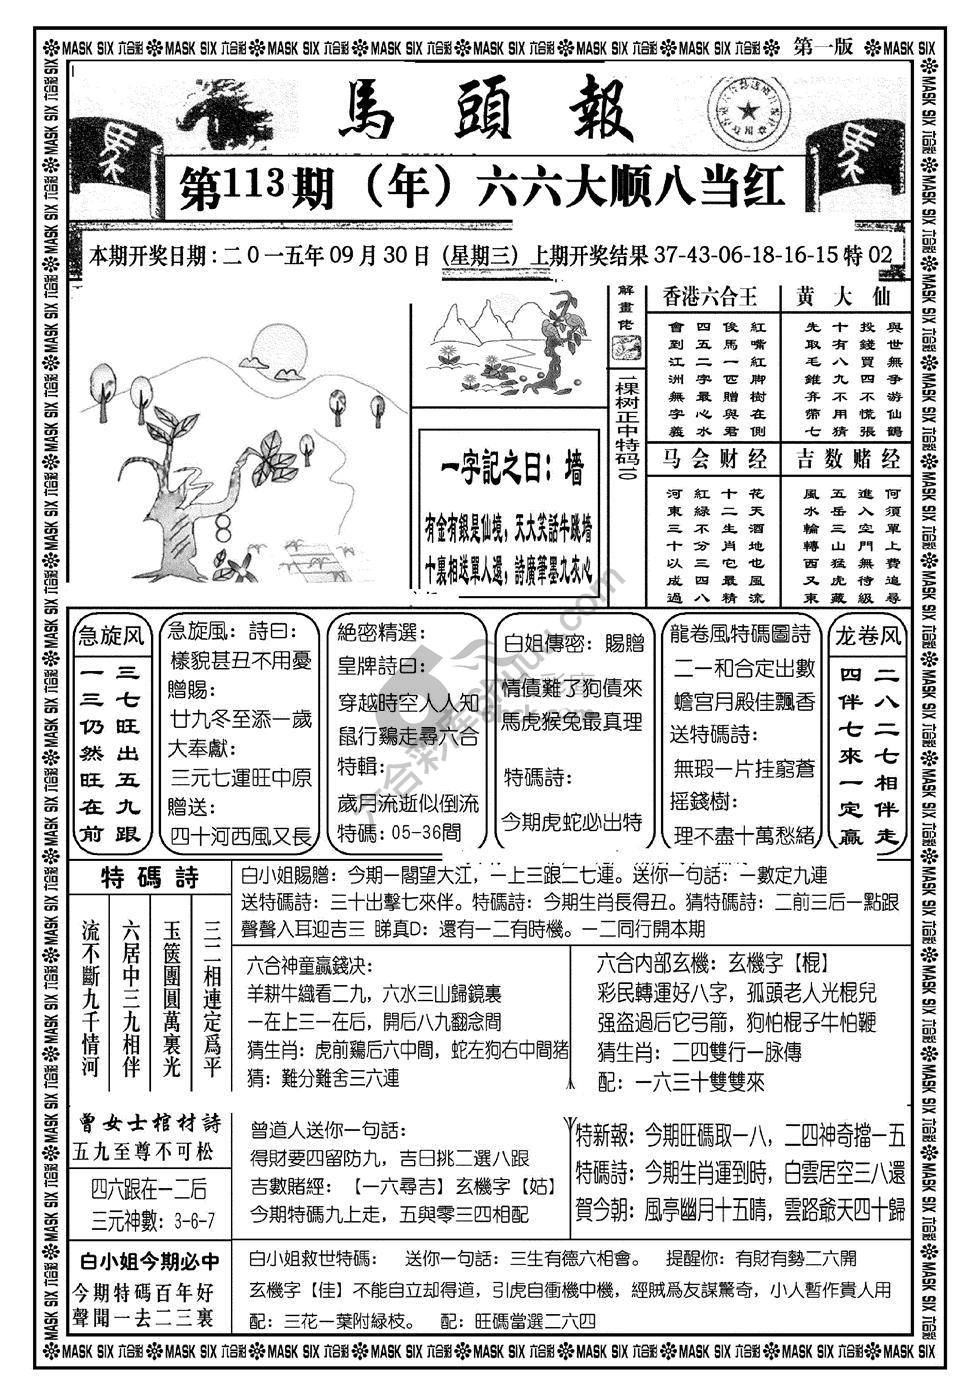 MASK SIX 六合彩 MASK SIX 六合彩 MASK SIX 六合彩 MASK SIX 六合彩 MASK SIX 六合彩 MASK SIX 六合彩 MASK SIX 六合彩 第一版 MASK SIX
馬頭報
第113期（年）六六大顺八当红
本期开奖日期:二0一五年09月30日（星期三）上期开奖结果37-43-06-18-16-15特02
解畫佬
一棵树正中特码二0
一字記之日：墙
有金有銀是仙境，天大笑話牛跳墙
十裏相送單人還，詩廣筆墨九夾心
香港六合王
紅嘴紅脚樹在側
俊馬一匹贈與君
四五二字最心水
會到江洲無字義
黄大仙
與世無争游仙鶴
投錢買四不慌張
十有八九不用猜
先取毛錐弃帶七
马会财经
花天酒地也風流
十二生肖它最精
紅綠不分三四八
河東三十以成過
吉数赌经
何須單上費追尋
進入空門無待級
五岳三山猛虎藏
風水輪轉西又東
急旋风
三七旺出五九跟
一三仍然旺在前
急旋風：詩曰：
樣貌甚丑不用憂
贈賜：
廿九冬至添一歲
大奉獻：
三元七運旺中原
贈送：
四十河西風又長
絶密精選：
皇牌詩曰：
穿越時空人人知
鼠行鷄走尋六合
特輯：
歲月流逝似倒流
特碼：05-36間
白姐傳密：賜贈
情債難了狗債來
馬虎猴兔最真理
特碼詩：
今期虎蛇必出特
龍卷風特碼圖詩
二一和合定出數
蟾宫月殿佳飄香
送特碼詩：
無瑕一片挂窮蒼
摇錢樹：
理不盡十萬愁緒
龙卷风
二八二七相伴走
四伴七來一定赢
特碼詩
三二相連定爲平
玉篋團圓萬裏光
六居中三九相伴
流不斷九千情河
白小姐賜贈：今期一閣望大江，一上三跟二七連。送你一句話：一數定九連
送特碼詩：三十出擊七來伴。特碼詩：今期生肖長得丑。猜特碼詩：二前三后一點跟
聲聲入耳迎吉三 睇真D：還有一二有時機。一二同行開本期
六合神童贏錢决：
羊耕牛織看二九，六水三山歸鏡裏
一在上三一在后，開后八九翻念間
猜生肖：虎前鷄后六中間，蛇左狗右中間猪
猜：難分難舍三六連
六合内部玄機：玄機字【棍】
彩民轉運好八字，孤頭老人光棍兒
强盗過后它弓箭，狗怕棍子牛怕鞭
猜生肖：二四雙行一脉傳
配：一六三十雙雙來
曾女士棺材詩
五九至尊不可松
四六跟在一二后
三元神數：3-6-7
曾道人送你一句話：
得財要四留防九，吉日挑二選八跟
吉數賭經：【一六尋吉】玄機字【姑】
今期特碼九上走，五與零三四相配
特新報：今期旺碼取一八，二四神奇擋一五
特碼詩：今期生肖運到時，白雲居空三八還
賀今朝：風亭幽月十五晴，雲路爺天四十歸
白小姐今期必中
今期特碼百年好
聲聞一去二三裏
白小姐救世特碼： 送你一句話：三生有德六相會。 提醒你：有財有勢二六開
玄機字【佳】不能自立却得道，引虎自衝機中機，經賊爲友謀驚奇，小人暫作貴人用
配：三花一葉附綠枝。 配：旺碼當選二六四
MASK SIX 六合彩 MASK SIX 六合彩 MASK SIX 六合彩 MASK SIX 六合彩 MASK SIX 六合彩 MASK SIX 六合彩 MASK SIX 六合彩 MASK SIX 六合彩 MASK SIX